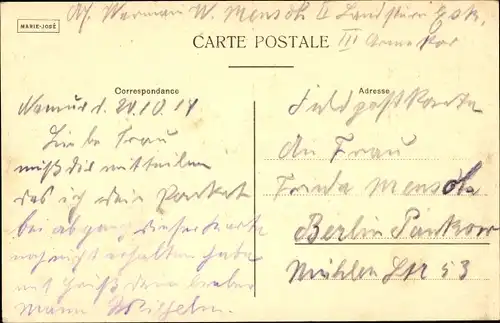 MARIE-JOSÉ
W. Mensch II Landsturm Esk.
III Armekor
CARTE POSTALE
Correspondance
Namur d. 20.10.14
Liebe Frau
muß dir mitteilen
das ich dein Packet
bei abgang dieser Karte
noch nicht erhalten habe
mit Gruß dein lieber
Mann Wilhelm.
Adresse
Feldpostkarte
An Frau
Frida Mensch
Berlin Pankow
Mühlen Str 53